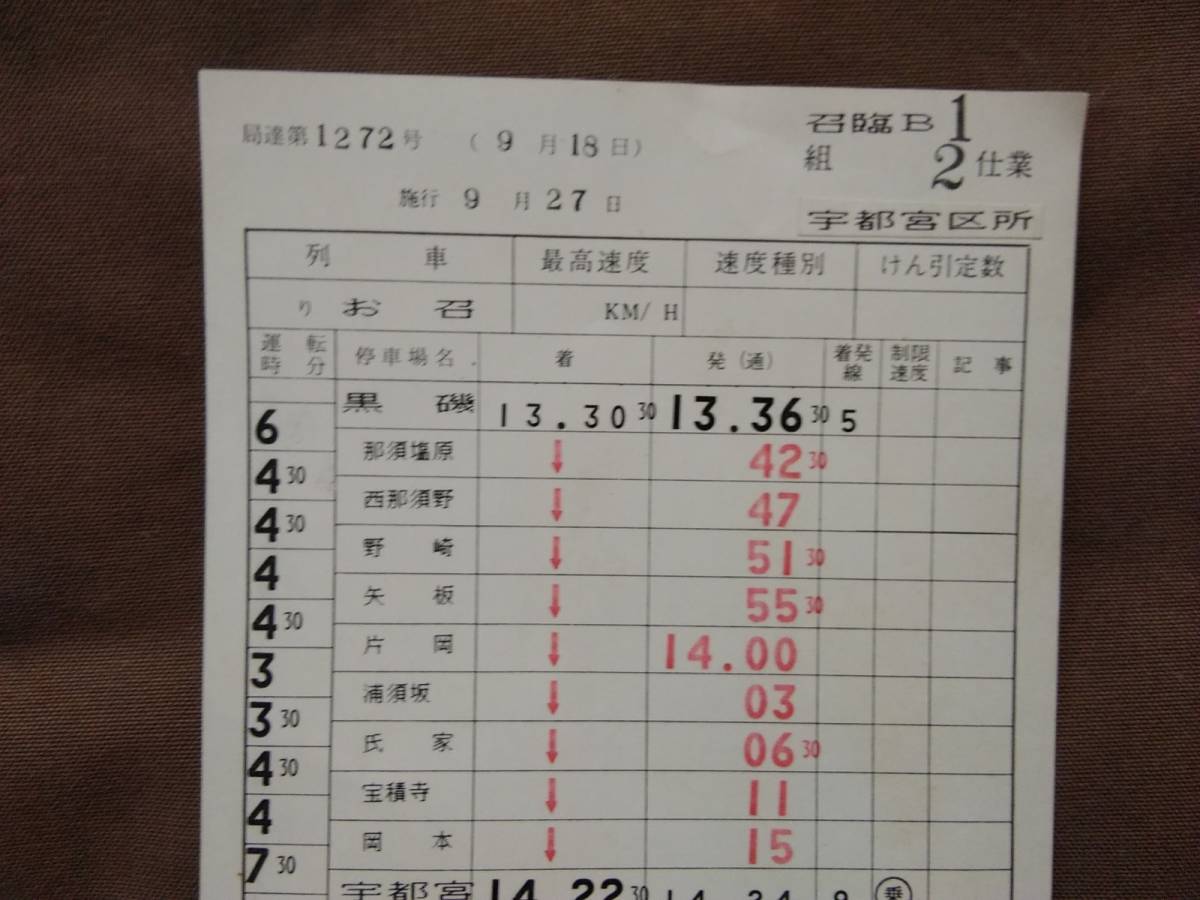 局達第1272号 (9月18日) 召臨B1
組 2仕業
施行 9月27日
宇都宮区所
列車 最高速度 速度種別 けん引定数
り お召 KM/H
運転時分 停車場名. 着 発(通) 着発線 制限速度 記事
黒磯 13.30 30 13.36 30 5
6
那須塩原 ↓ 42 30
4 30
西那須野 ↓ 47
4 30
野崎 ↓ 51 30
4
矢板 ↓ 55 30
4 30
片岡 ↓ 14.00
3
浦須坂 ↓ 03
3 30
氏家 ↓ 06 30
4 30
宝積寺 ↓ 11
4
岡本 ↓ 15
7 30
宇都宮 14.22 30 14.24 9 乗